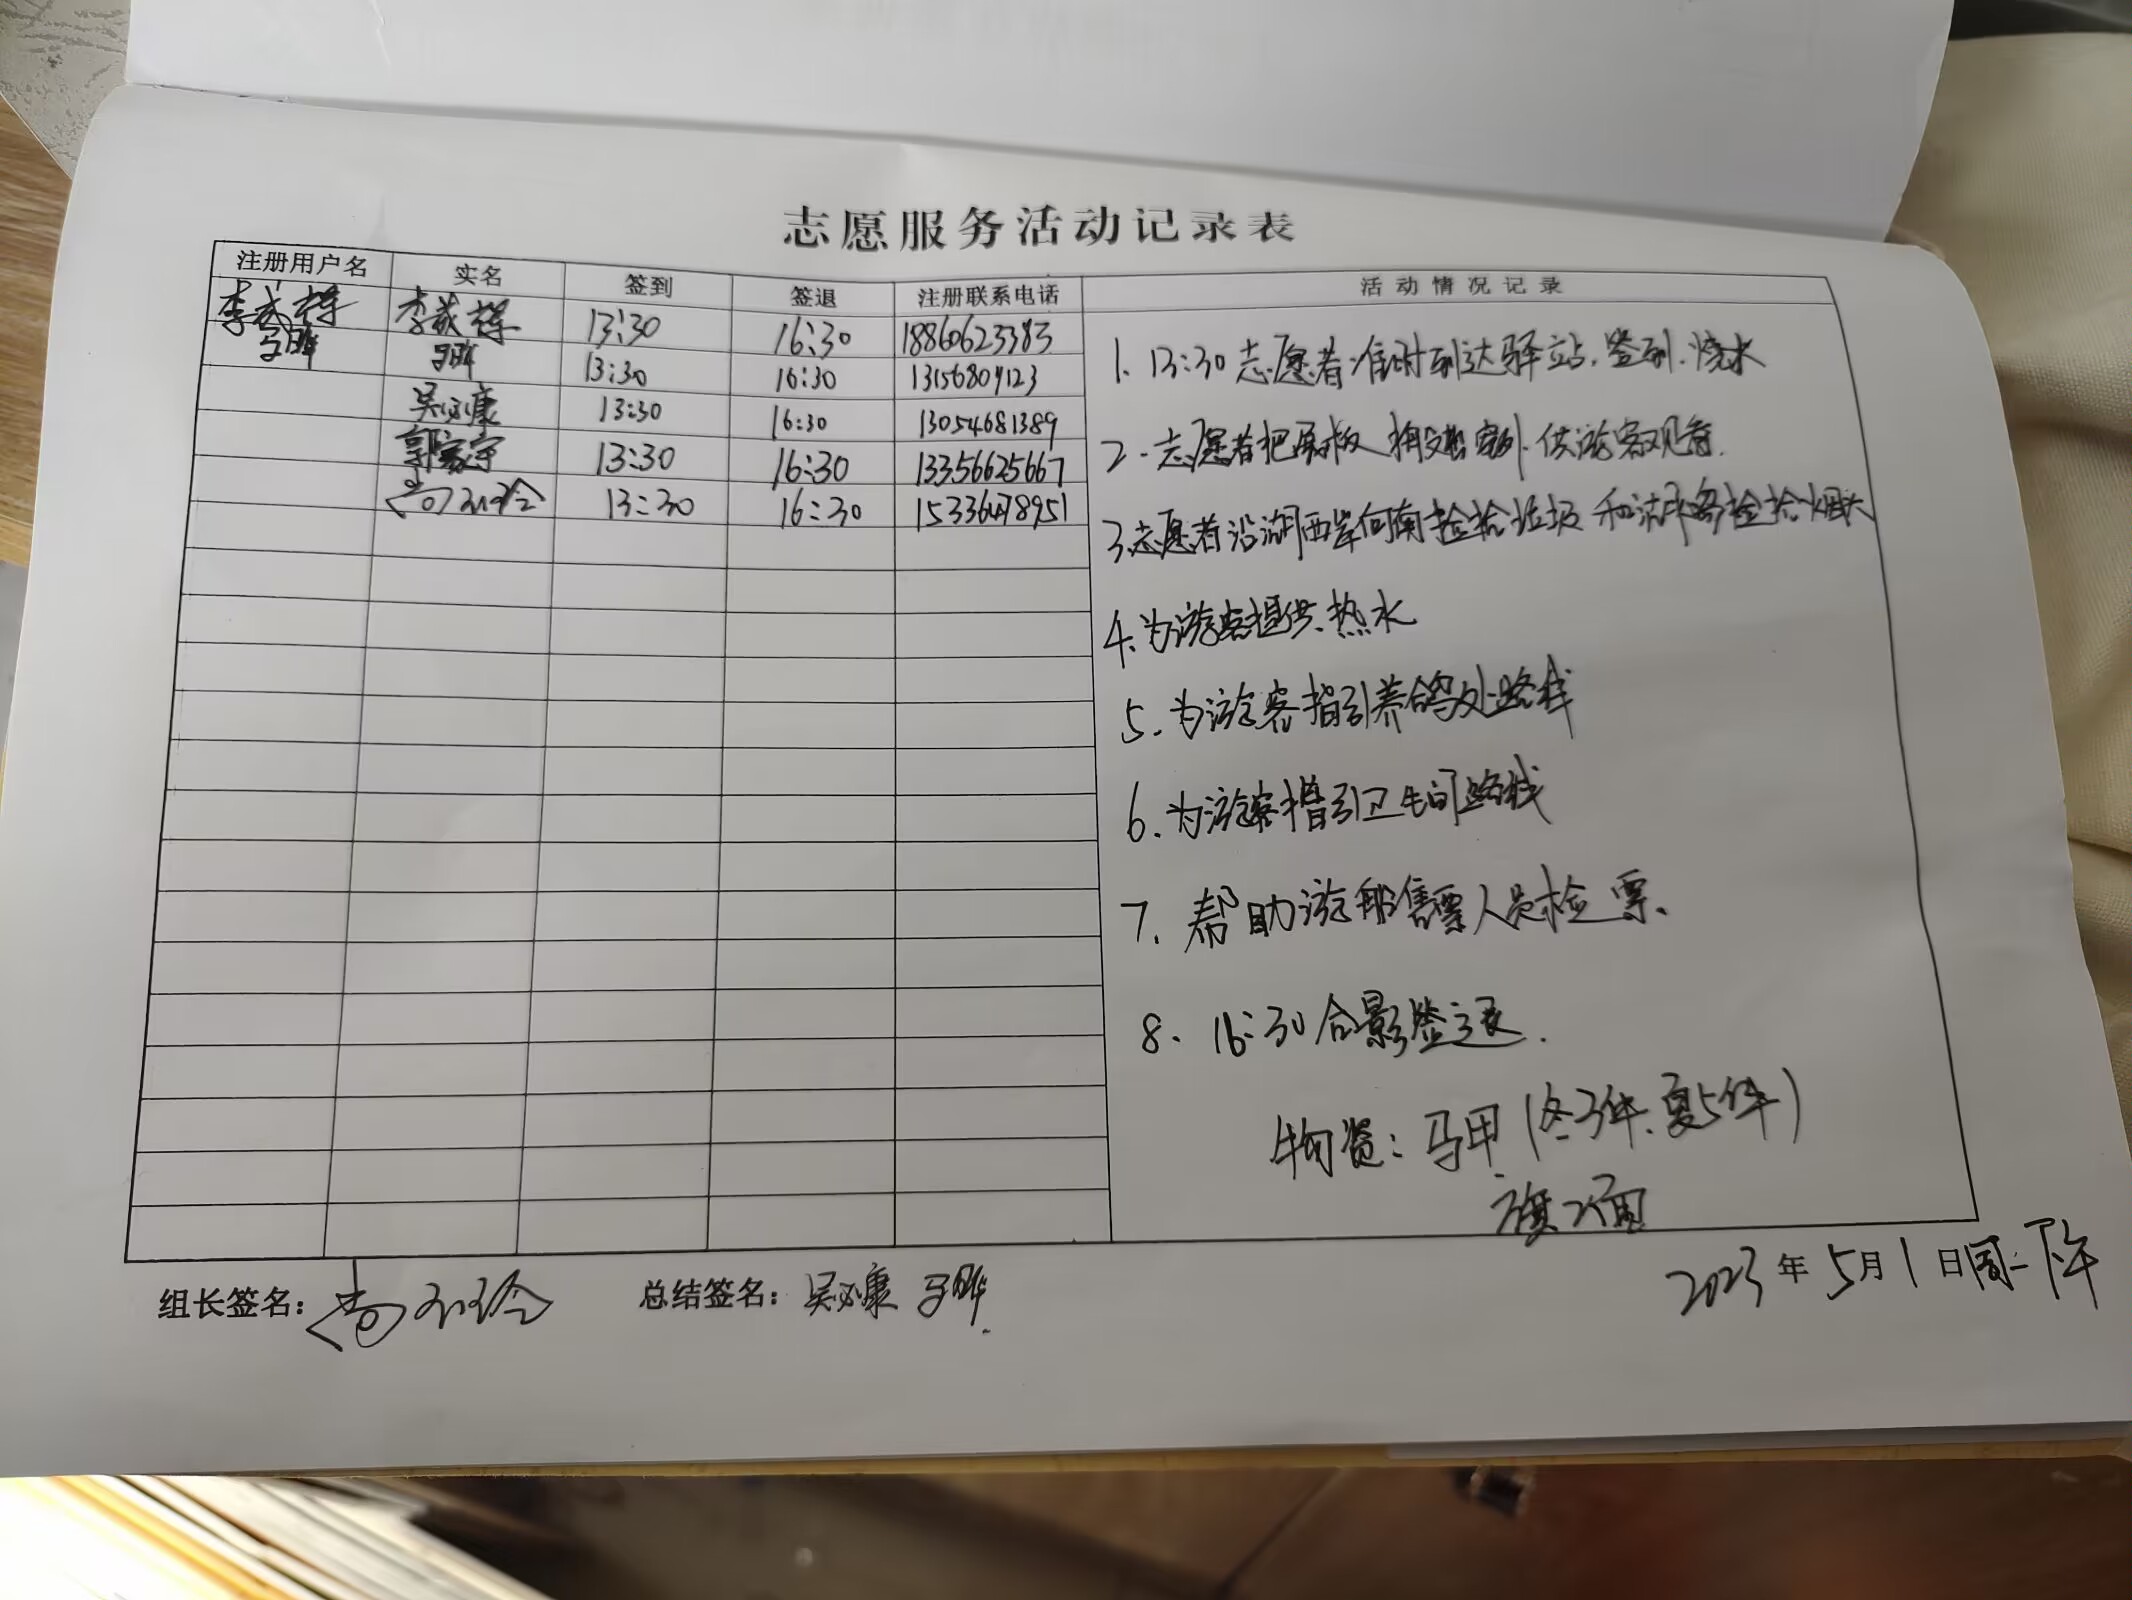 志愿服务活动记录表
注册用户名 实名 签到 签退 注册联系电话 活动情况记录
13:30 16:30 18860623383
马晔 马晔 13:30 16:30 13156807123
吴必康 13:30 16:30 13054681389
郭家宇 13:30 16:30 13356625667
13:30 16:30 15336478951
1. 13:30志愿者准时到达驿站、签到、烧水
2. 志愿者把展板搬到室外供游客观看.
3.志愿者沿湖西岸向南捡拾垃圾和请游客捡拾烟头
4.为游客提供热水
5.为游客指引养鸽处路线
6.为游客指引卫生间路线
7.帮助游船售票人员检票、
8. 16:30合影签退.
物资：马甲(冬3件、夏5件)
旗2面
组长签名： 总结签名：吴必康 马晔 2023年5月1日周一下午